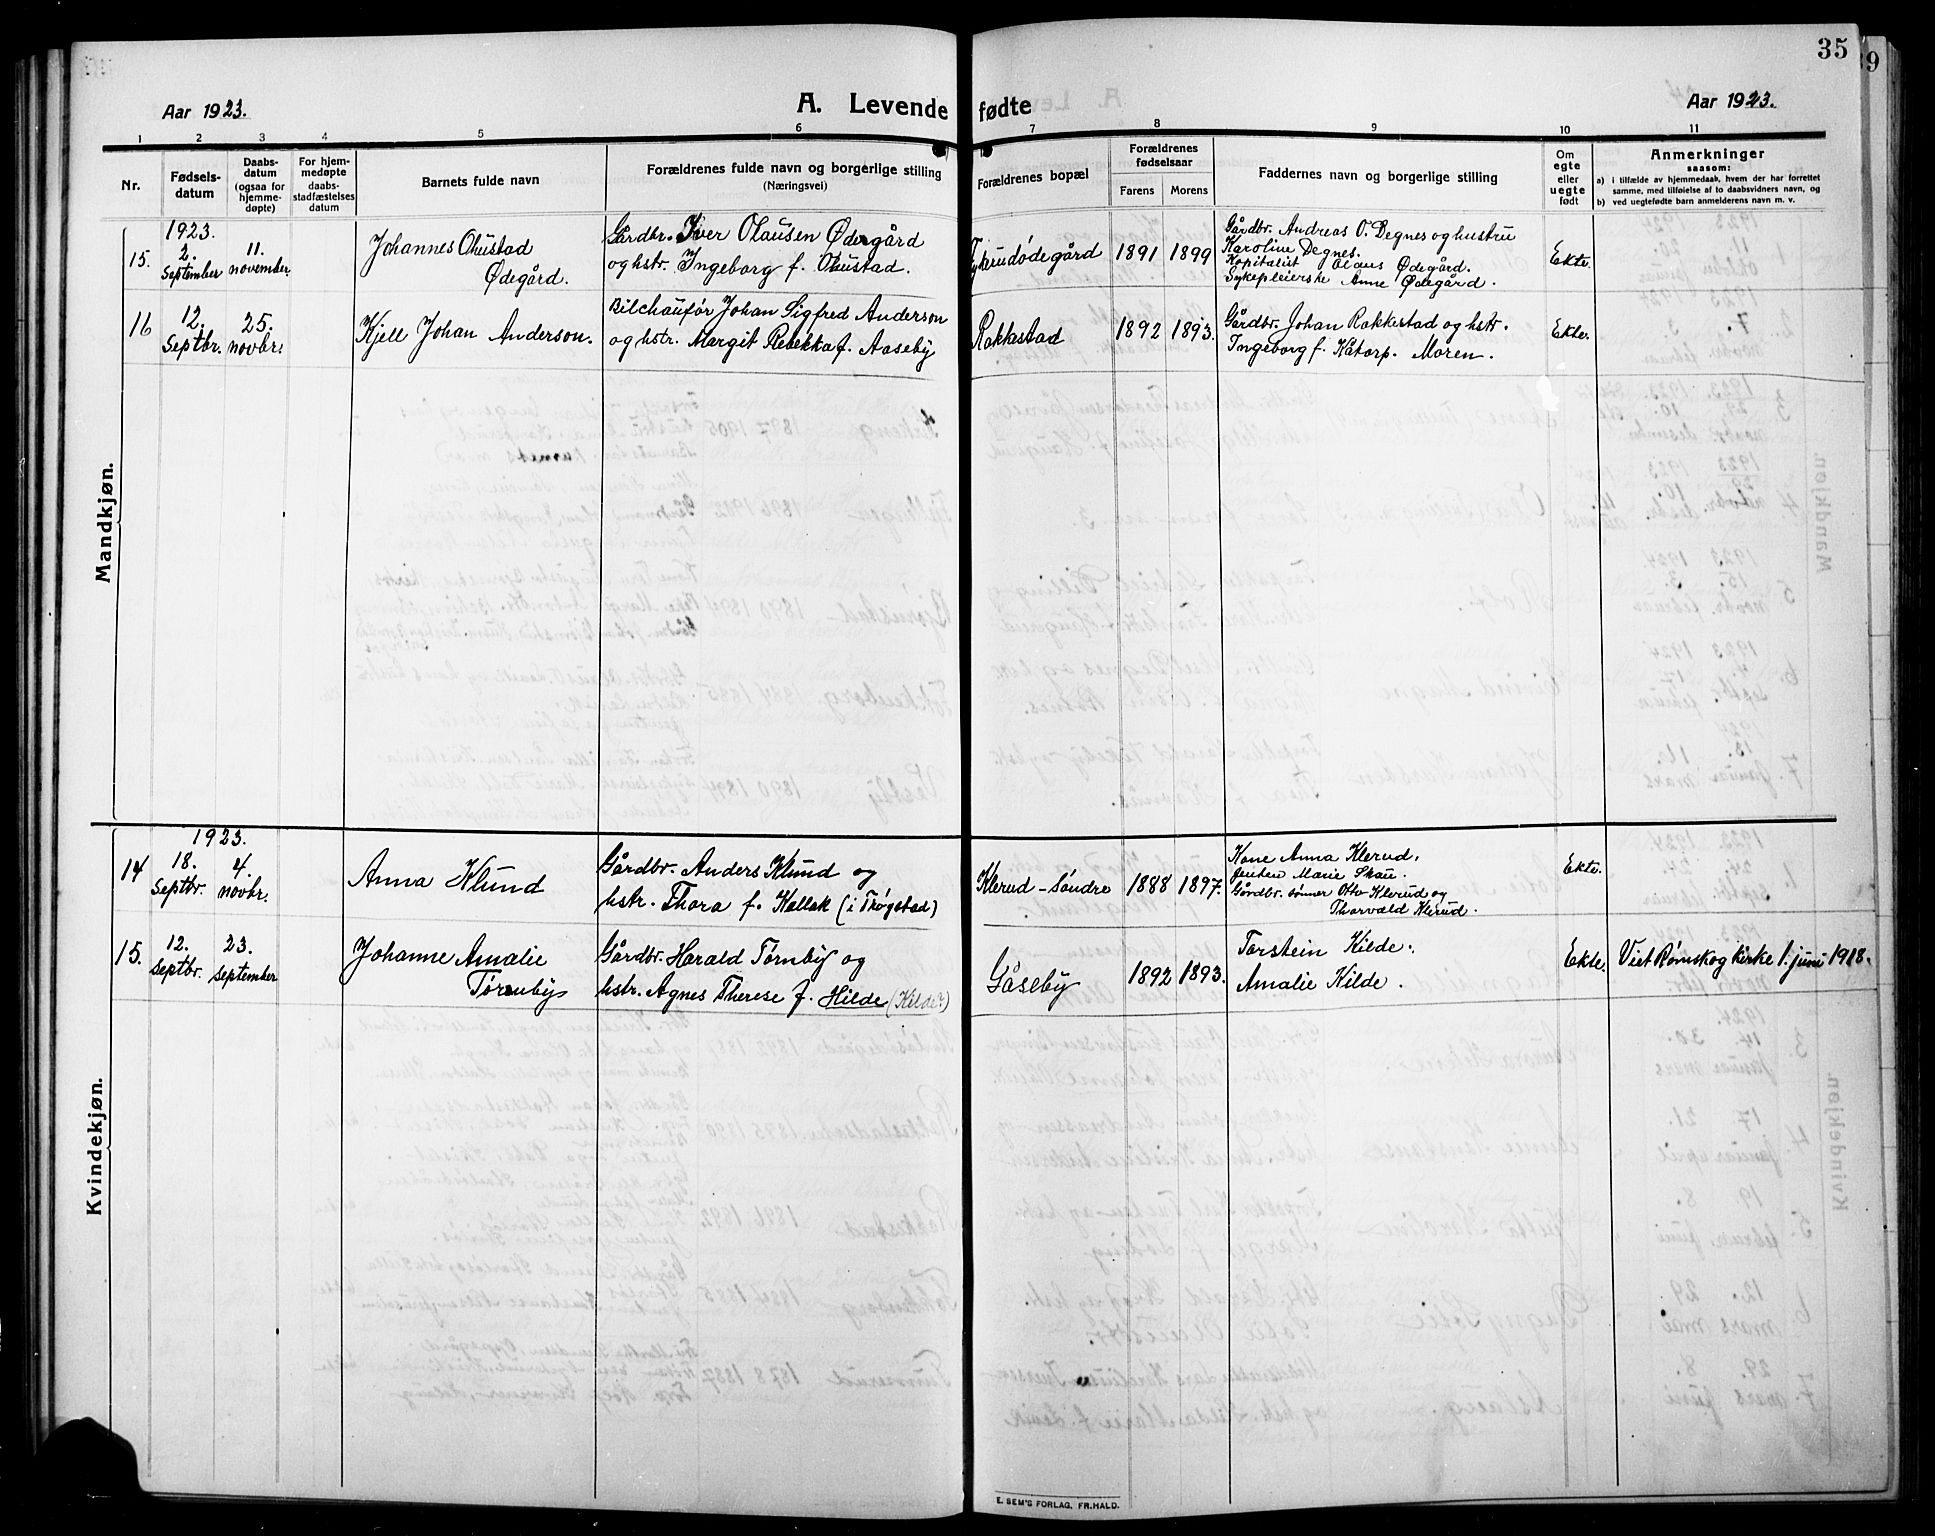 35
Aar 1923.
A. Levende fødte
Aar 1923.
1 2 3 4 5 6 7 8 9 10 11
Nr.
Fødsels-
datum
Daabs-
datum
(ogsaa for
hjemme-
døpte)
For hjem-
medøpte
daabs-
stadfæstelses
datum
Barnets fulde navn
Forældrenes fulde navn og borgerlige stilling
(Næringsvei)
Forældrenes bopæl
Forældrenes
fødselsaar
Farens Morens
Faddernes navn og borgerlige stilling
Om
egte
eller
uegte
født
Anmerkninger
saasom:
a) i tilfælde av hjemmedaab, hvem der har forrettet
samme, med tilføielse af to daabsvidners navn, og
b) ved uegtefødte barn anmelderens navn m. v.
Mandkjøn.
1923.
15. 2. September
11. november.
Johannes Ohustad
Ødegård.
Gårdbr. Iver Olausen Ødegård
og hstr. Ingeborg f. Ohustad.
1891 1899
Gårdbr. Andreas O. Degnes og hustru
Karoline Degnes.
Kapitalist Olaus Ødegård.
Sykepleierske Anne Ødegård.
Ekte.
16 12. Septbr.
25. novbr.
Kjell Johan Anderson.
Bilchaufør Johan Sigfred Anderson
og hstr. Margit Rebekka f. Aaseby
Rakkestad
1892 1893.
Gårdbr. Johan Rakkestad og hstr.
Ingeborg f. Kåtorp. Moren.
Ekte.
Kvindekjøn.
1923.
14 18. Septbr.
4. novbr.
Anna Klund
Gårdbr. Anders Klund og
hstr. Thora f. Kallak (i Trøgstad)
Klerud - Søndre
1888 1897.
Kone Anna Klerud.
Jenten Marie Skau.
Gårdbr. sønner Otto Klerud og
Thorvald Klerud.
Ekte.
15. 12. Septbr.
23. September
Johanne Amalie
Tørnby
Gårdbr. Harald Tørnby og
hstr. Agnes Therese f. Hilde (Kilde)
Gåseby
1892 1893.
Torstein Kilde.
Amalie Kilde.
Ekte.
Viet Rømskog kirke 1. juni 1918.
E. SEM'S FORLAG, FR.HALD.